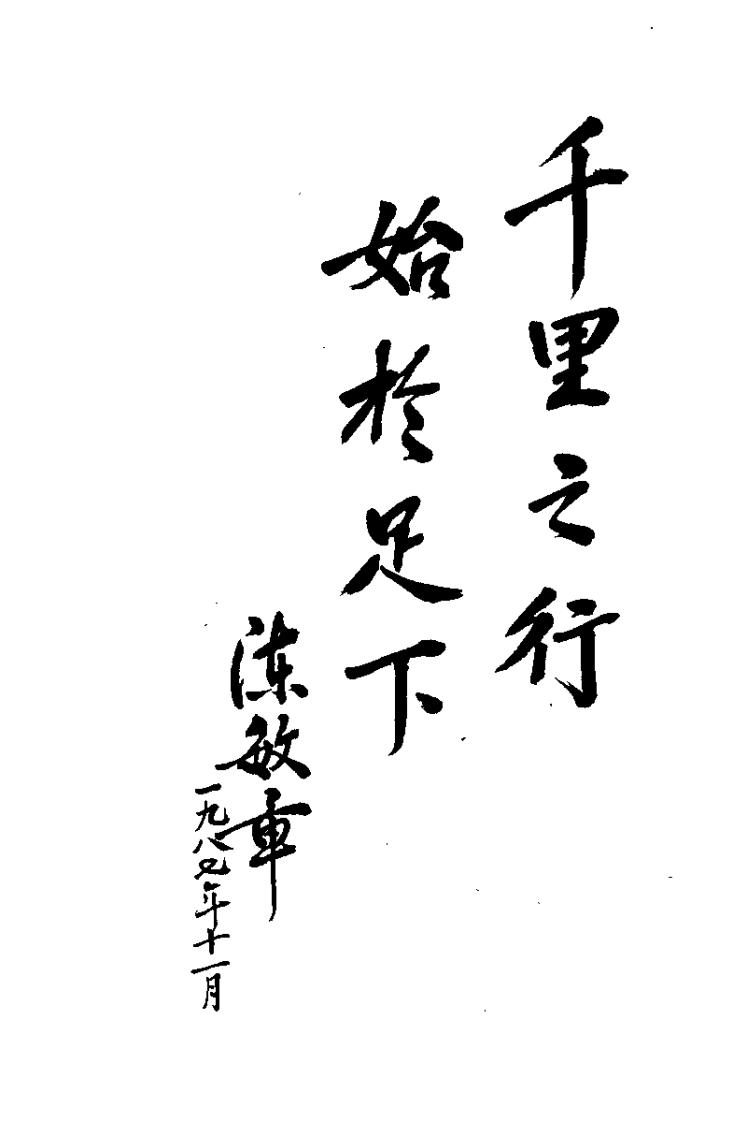 千里之行
始於足下
陈敏章
一九八七年十一月